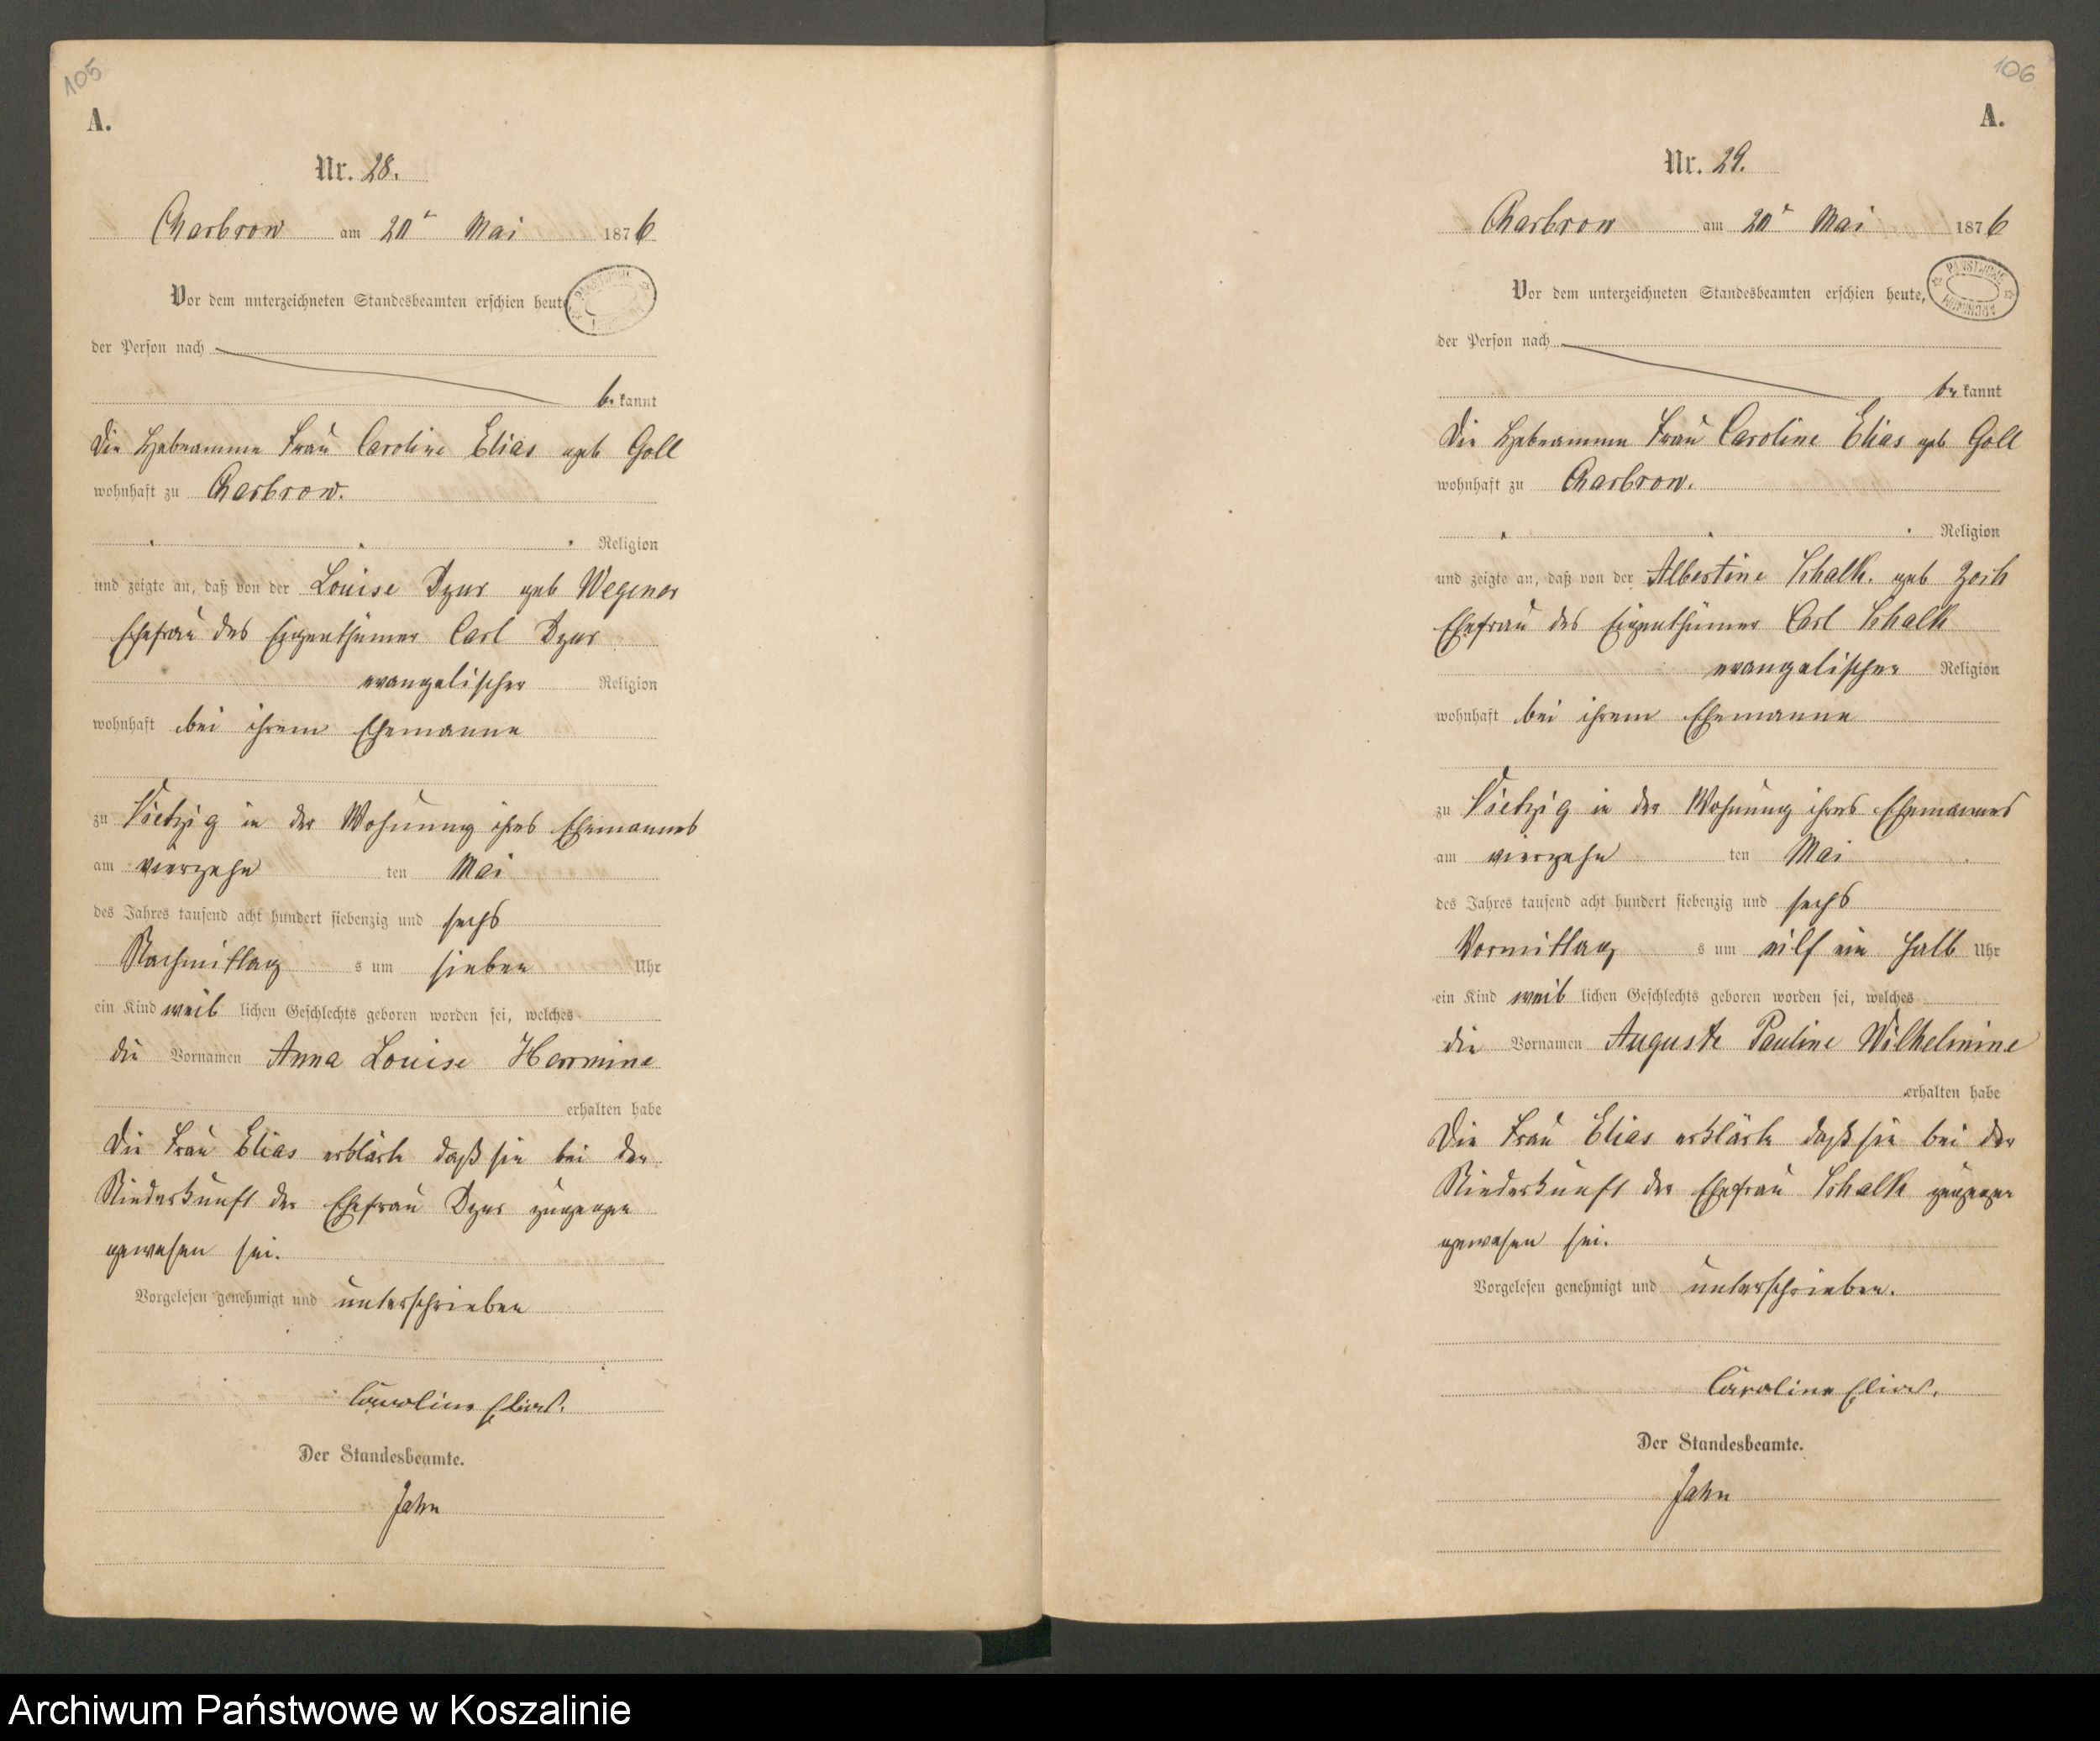 105
A.
Nr. 28.
Charbrow am 20t Mai 1876
Vor dem unterzeichneten Standesbeamten erschien heute
der Person nach
bekannt
Die Hebeamme Frau Caroline Elias geb Goll
wohnhaft zu Charbrow.
Religion
und zeigte an, daß von der Louise Dzur geb Wegener
Ehefrau des Eigenthümer Carl Dzur
evangelischer Religion
wohnhaft bei ihrem Ehemanne
zu Vietzig in der Wohnung ihres Ehemannes
am vierzehn ten Mai
des Jahres tausend acht hundert siebenzig und sechs
Nachmittag s um sieben Uhr
ein Kind weib lichen Geschlechts geboren worden sei, welches
die Vornamen Anna Louise Hermine
erhalten habe
Die Frau Elias erklärte daß sie bei der
Niederkunft der Ehefrau Dzur zugegen
gewesen sei.
Vorgelesen genehmigt und unterschrieben
Caroline Elias.
Der Standesbeamte.
Jahn
106
A.
Nr. 29.
Charbrow am 20t Mai 1876
Vor dem unterzeichneten Standesbeamten erschien heute,
PAŃSTWOWE ARCHIWUM
der Person nach
bekannt
Die Hebeamme Frau Caroline Elias geb Goll
wohnhaft zu Charbrow.
Religion
und zeigte an, daß von der Albertine Schalk. geb
Ehefrau des Eigenthümer Carl Schalk
evangelischer Religion
wohnhaft bei ihrem Ehemanne
zu Vietzig in der Wohnung ihres Ehemannes
am vierzehn ten Mai
des Jahres tausend acht hundert siebenzig und sechs
Vormittag s um eilf ein halb Uhr
ein Kind weib lichen Geschlechts geboren worden sei, welches
die Vornamen Auguste Pauline Wilhelmine
erhalten habe
Die Frau Elias erklärte daß sie bei der
Niederkunft der Ehefrau Schalk zugegen
gewesen sei.
Vorgelesen genehmigt und unterschrieben.
Caroline Elias.
Der Standesbeamte.
Jahn
Archiwum Państwowe w Koszalinie